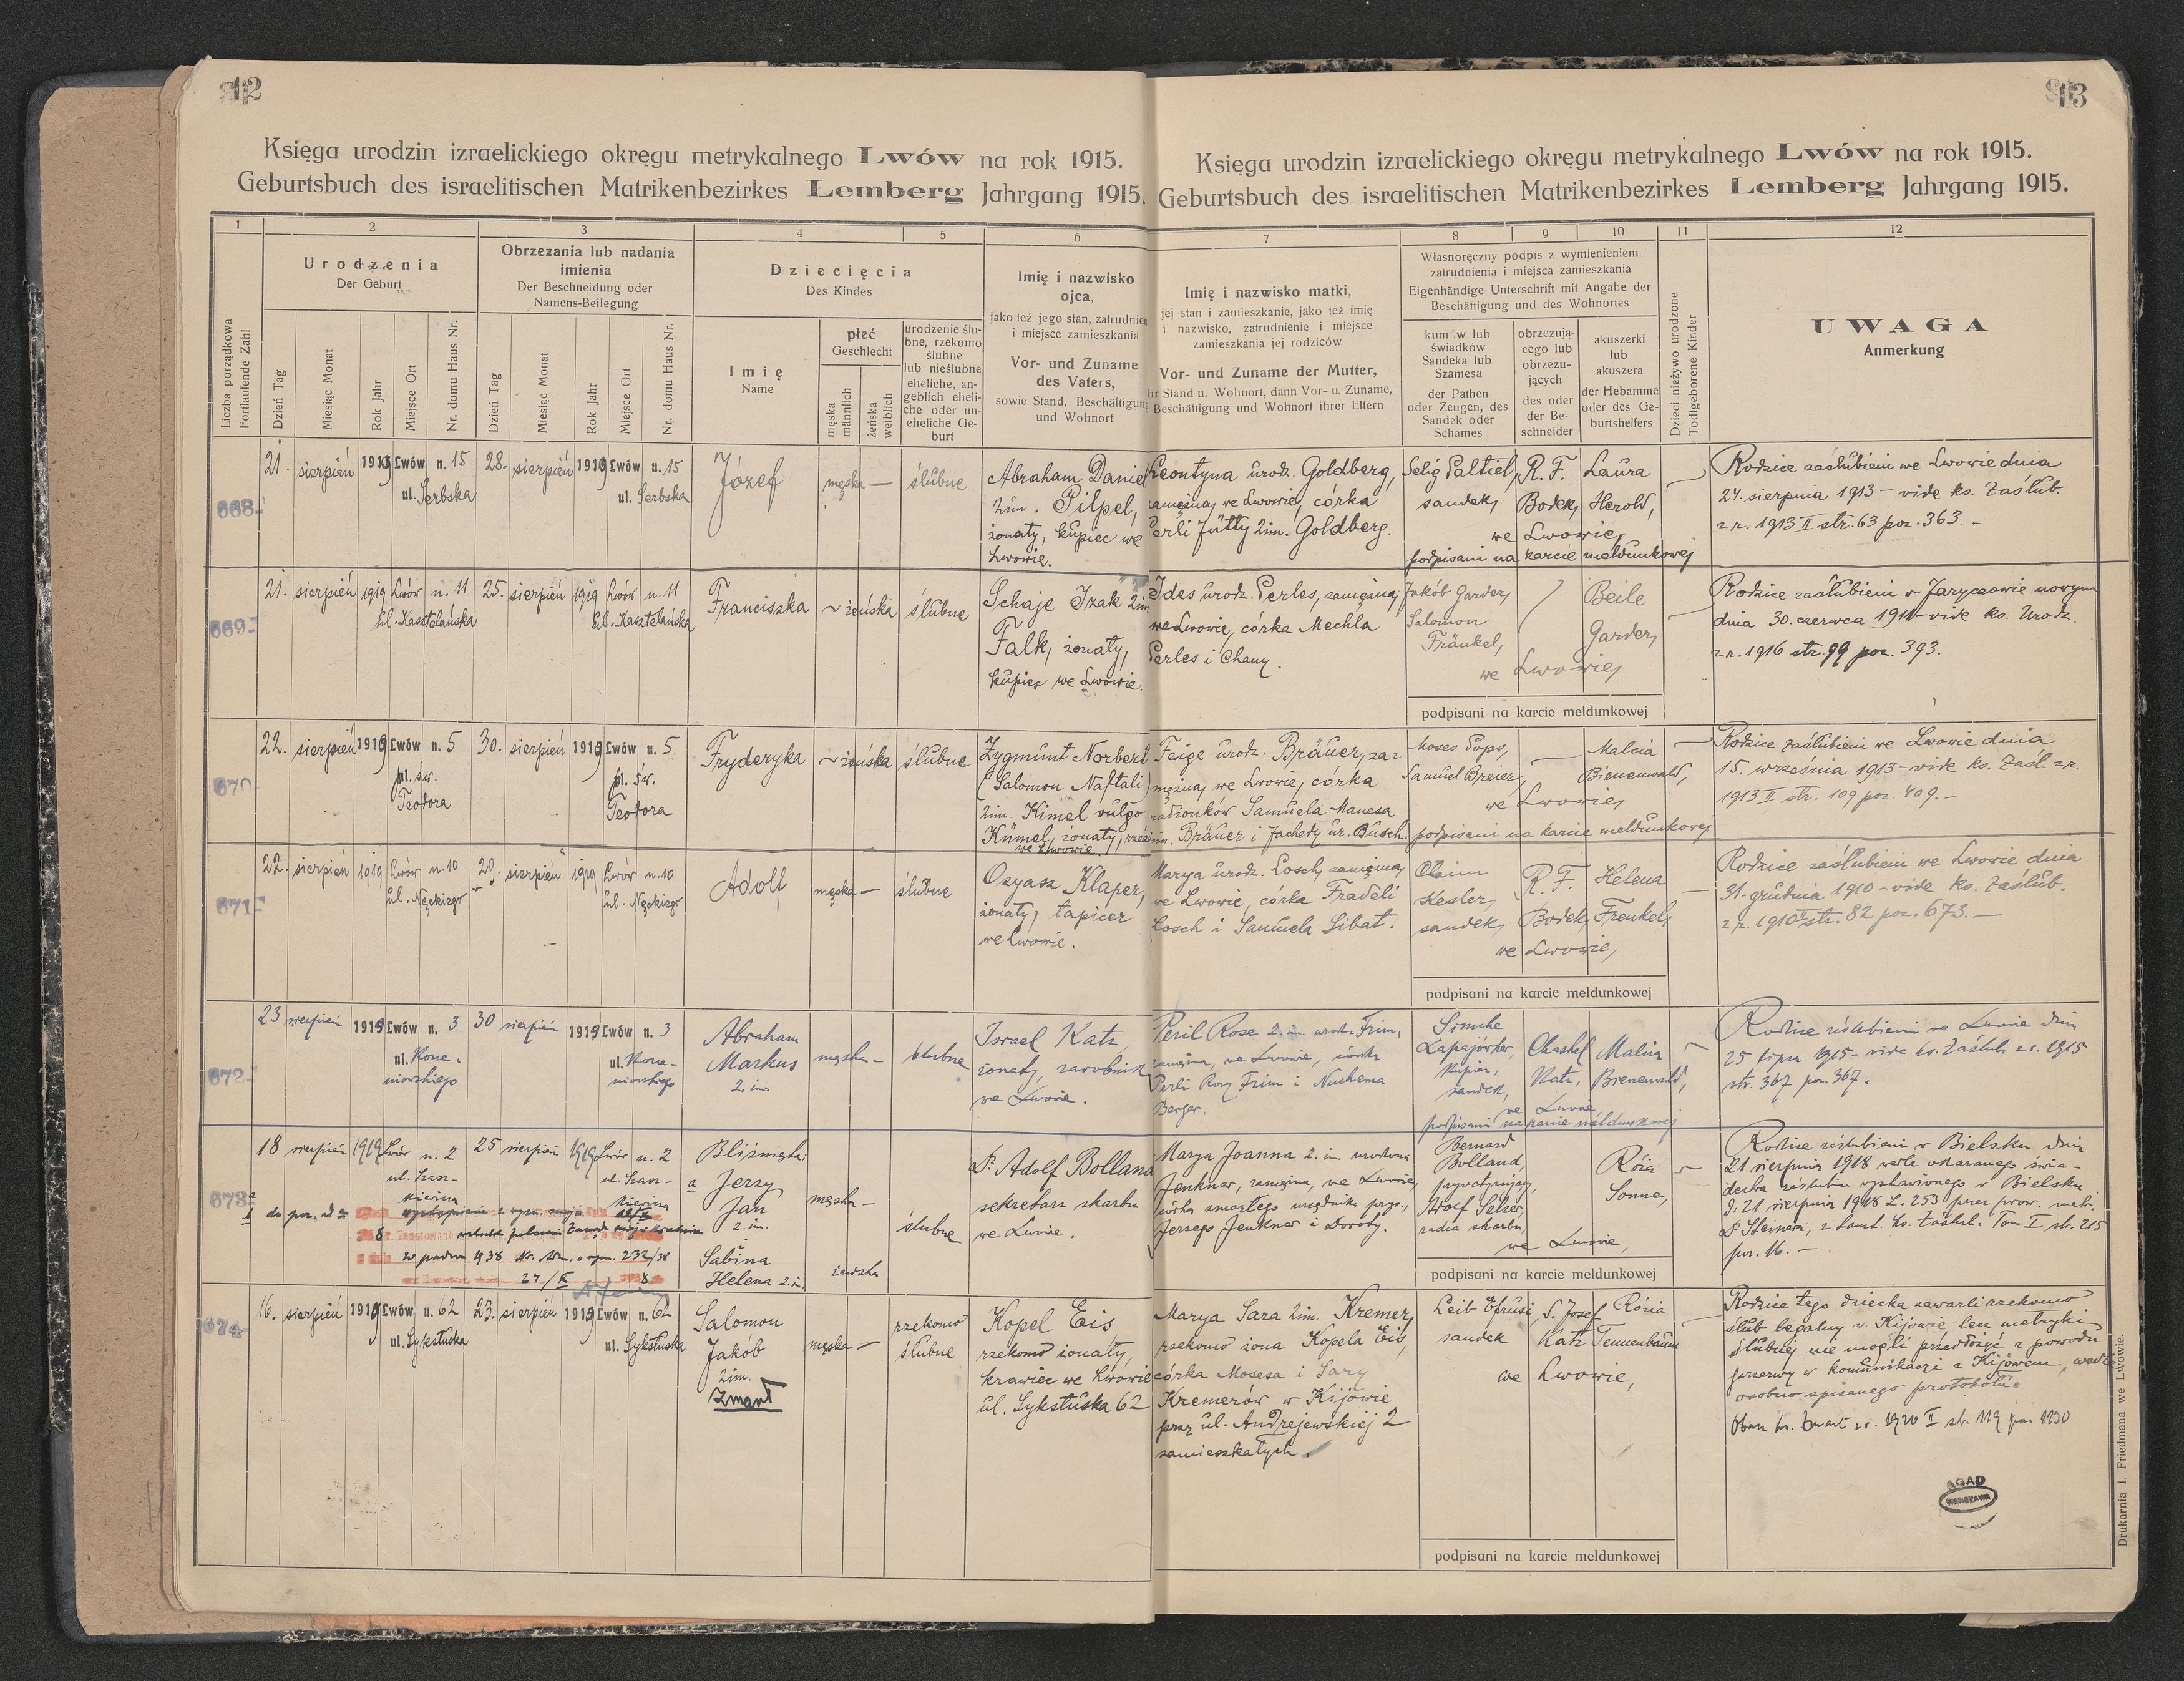 12
13
Księga urodzin izraelickiego okręgu metrykalnego Lwów na rok 1915.
Geburtsbuch des israelitischen Matrikenbezirkes Lemberg Jahrgang 1915.
Księga urodzin izraelickiego okręgu metrykalnego Lwów na rok 1915.
Geburtsbuch des israelitischen Matrikenbezirkes Lemberg Jahrgang 1915.
1 2 3 4 5 6 7 8 9 10 11 12
Liczba porządkowa
Fortlaufende Zahl
Urodzenia
Der Geburt
Dzień Tag
Miesiąc Monat
Rok Jahr
Miejsce Ort
Nr. domu Haus Nr.
Obrzezania lub nadania
imienia
Der Beschneidung oder
Namens-Beilegung
Dzień Tag
Miesiąc Monat
Rok Jahr
Miejsce Ort
Nr. domu Haus Nr.
Dziecięcia
Des Kindes
Imię
Name
płeć
Geschlecht
męska
männlich
żeńska
weiblich
urodzenie ślu-
bne, rzekomo
ślubne
lub nieślubne
eheliche, an-
geblich eheli-
che oder un-
eheliche Ge-
burt
Imię i nazwisko
ojca,
jako też jego stan, zatrudnien
i miejsce zamieszkania
Vor- und Zuname
des Vaters,
sowie Stand, Beschäftigung
und Wohnort
Imię i nazwisko matki,
jej stan i zamieszkanie, jako też imię
i nazwisko, zatrudnienie i miejsce
zamieszkania jej rodziców
Vor- und Zuname der Mutter,
hr Stand u. Wohnort, dann Vor- u. Zuname,
Beschäftigung und Wohnort ihrer Eltern
Własnoręczny podpis z wymienieniem
zatrudnienia i miejsca zamieszkania
Eigenhändige Unterschrift mit Angabe der
Beschäftigung und des Wohnortes
kumów lub
świadków
Sandeka lub
Szamesa
der Pathen
oder Zeugen, des
Sandek oder
Schames
obrzezują-
cego lub
obrzezu-
jących
des oder
der Be-
schneider
akuszerki
lub
akuszera
der Hebamme
oder des Ge-
burtshelfers
Dzieci nieżywo urodzone
Todtgeborene Kinder
UWAGA
Anmerkung
668
21. sierpień 1919 Lwów n. 15
ul. Serbska
28. sierpień 1919 Lwów n. 15
ul. Serbska
Józef
męska —
ślubne
Abraham Daniel
2im. Pilpel,
żonaty, kupiec we
Lwowie.
Leontyna urodz. Goldberg,
zamężna, we Lwowie, córka
Perli Jütty 2im. Goldberg.
Selig Paltiel,
sandek,
R. F.
Bodek,
Laura
Herold,
we Lwowie,
podpisani na karcie meldunkowej
Rodzice zaślubieni we Lwowie dnia
24. sierpnia 1913 - vide ks. zaślub.
z r. 1913 II str. 63 poz. 363. -
669
21. sierpień 1919 Lwów n. 11
ul. Kasztelańska
25. sierpień 1919 Lwów n. 11
ul. Kasztelańska
Franciszka
~ żeńska
ślubne
Schaje Izak 2im
Falk, żonaty,
kupiec we Lwowie.
Ides urodz. Perles, zamężna,
we Lwowie, córka Mechla
Perles i Chany.
Jakób Garder,
Salomon
Fränkel,
Beile
Garder,
we Lwowie,
podpisani na karcie meldunkowej
Rodzice zaślubieni w Jaryczowie nowym
dnia 30. czerwca 1911 - vide ks. Urodz.
z r. 1916 str. 99 poz. 393.
670
22. sierpień 1919 Lwów n. 5
pl. św.
Teodora
30. sierpień 1919 Lwów n. 5
pl. św.
Teodora
Fryderyka
~ żeńska
ślubne
Zygmunt Norbert
(Salomon Naftali)
2im. Kimel vulgo
Kümel, żonaty,
we Lwowie.
Feige urodz. Bräuer, za-
mężna, we Lwowie, córka
małżonków Samuela Manesa
2im. Bräuer i Jachety ur. Busch.
Moses Pops,
Samuel Breier,
Malcia
Bienenwald,
we Lwowie,
podpisani na karcie meldunkowej
Rodzice zaślubieni we Lwowie dnia
15. września 1913 - vide ks. Zaśl. z r.
1913 II str. 109 poz. 409. -
671
22. sierpień 1919 Lwów n. 10
ul. Nęckiego
29. sierpień 1919 Lwów n. 10
ul. Nęckiego
Adolf
męska —
ślubne
Ozyasz Klaper,
żonaty, tapicer
we Lwowie.
Marya urodz. Losch, zamężna,
we Lwowie, córka Fradeli
Losch i Samuela Libat.
Chaim
Kesler,
sandek,
R. F.
Bodek,
Helena
Frenkel,
we Lwowie,
podpisani na karcie meldunkowej
Rodzice zaślubieni we Lwowie dnia
31. grudnia 1910 - vide ks. zaślub.
z r. 1910 II str. 82 poz. 673. —
672
23 sierpień 1919 Lwów n. 3
30 sierpień 1919 Lwów n. 3
Abraham
Markus
2. im.
męska -
ślubne
Israel Katz,
żonaty, zarobnik
we Lwowie.
Peril Rose 2. im. urodz. Frim,
zamężna, we Lwowie, córka
Perli Rozy Frim i Nuchema
Berger.
Simche
Łapajówker,
kupiec,
sandek,
Chaskel
Katz,
Malcia
Bienenwald,
we Lwowie,
podpisani na karcie meldunkowej
Rodzice zaślubieni we Lwowie dnia
25 lipca 1915 - vide ks. Zaślub. z r. 1915
str. 367 poz. 367.
673
18 sierpień 1919 Lwów n. 2
25 sierpień 1919 Lwów n. 2
Bliźnięta:
a Jerzy
Jan
2. im.
męska —
Sabina
Helena 2. im.
żeńska
ślubne
Dr. Adolf Bolland
sekretarz skarbu
we Lwowie.
Marya Joanna 2. im. urodzona
Jenkner, zamężna, we Lwowie,
córka zmarłego urzędnika
Jerzego Jenkner i Doroty.
Bernard
Bolland,
Adolf Selzer,
radca skarbu,
Róża
Sonne,
we Lwowie,
podpisani na karcie meldunkowej
Rodzice zaślubieni w Bielsku dnia
21 sierpnia 1918 wedle okazanego świa-
dectwa zaślubin wystawionego w Bielsku
d. 21 sierpnia 1918 L. 253 przez prow. metr.
Dr Steinera, z tamt. ks. Zaślub. Tom I str. 215
poz. 16. —
674
16. sierpień 1919 Lwów n. 62
ul. Sykstuska
23. sierpień 1919 Lwów n. 62
ul. Sykstuska
Salomon
Jakób
2im.
Zmarł
męska —
rzekomo
ślubne
Kopel Eis
rzekomo żonaty,
krawiec we Lwowie
ul. Sykstuska 62
Marya Sara 2im. Kremer,
rzekomo żona Kopela Eis,
córka Mosesa i Sary
Kremerów w Kijowie
przy ul. Andrejewskiej 2
zamieszkałych.
Leib Efrusi,
sandek
S. Josef
Katz
Rózia
Tennenbaum
we Lwowie,
podpisani na karcie meldunkowej
Rodzice tego dziecka zawarli rzekomo
ślub legalny w Kijowie lecz metryki
ślubnej nie mogli przedłożyć z powodu
przerwy w komunikacji z Kijowem, wedle
osobno spisanego protokołu.
z r. 1920 II str. 119 poz. 1130
AGAD
WARSZAWA
Drukarnia I. Friedmana we Lwowie.